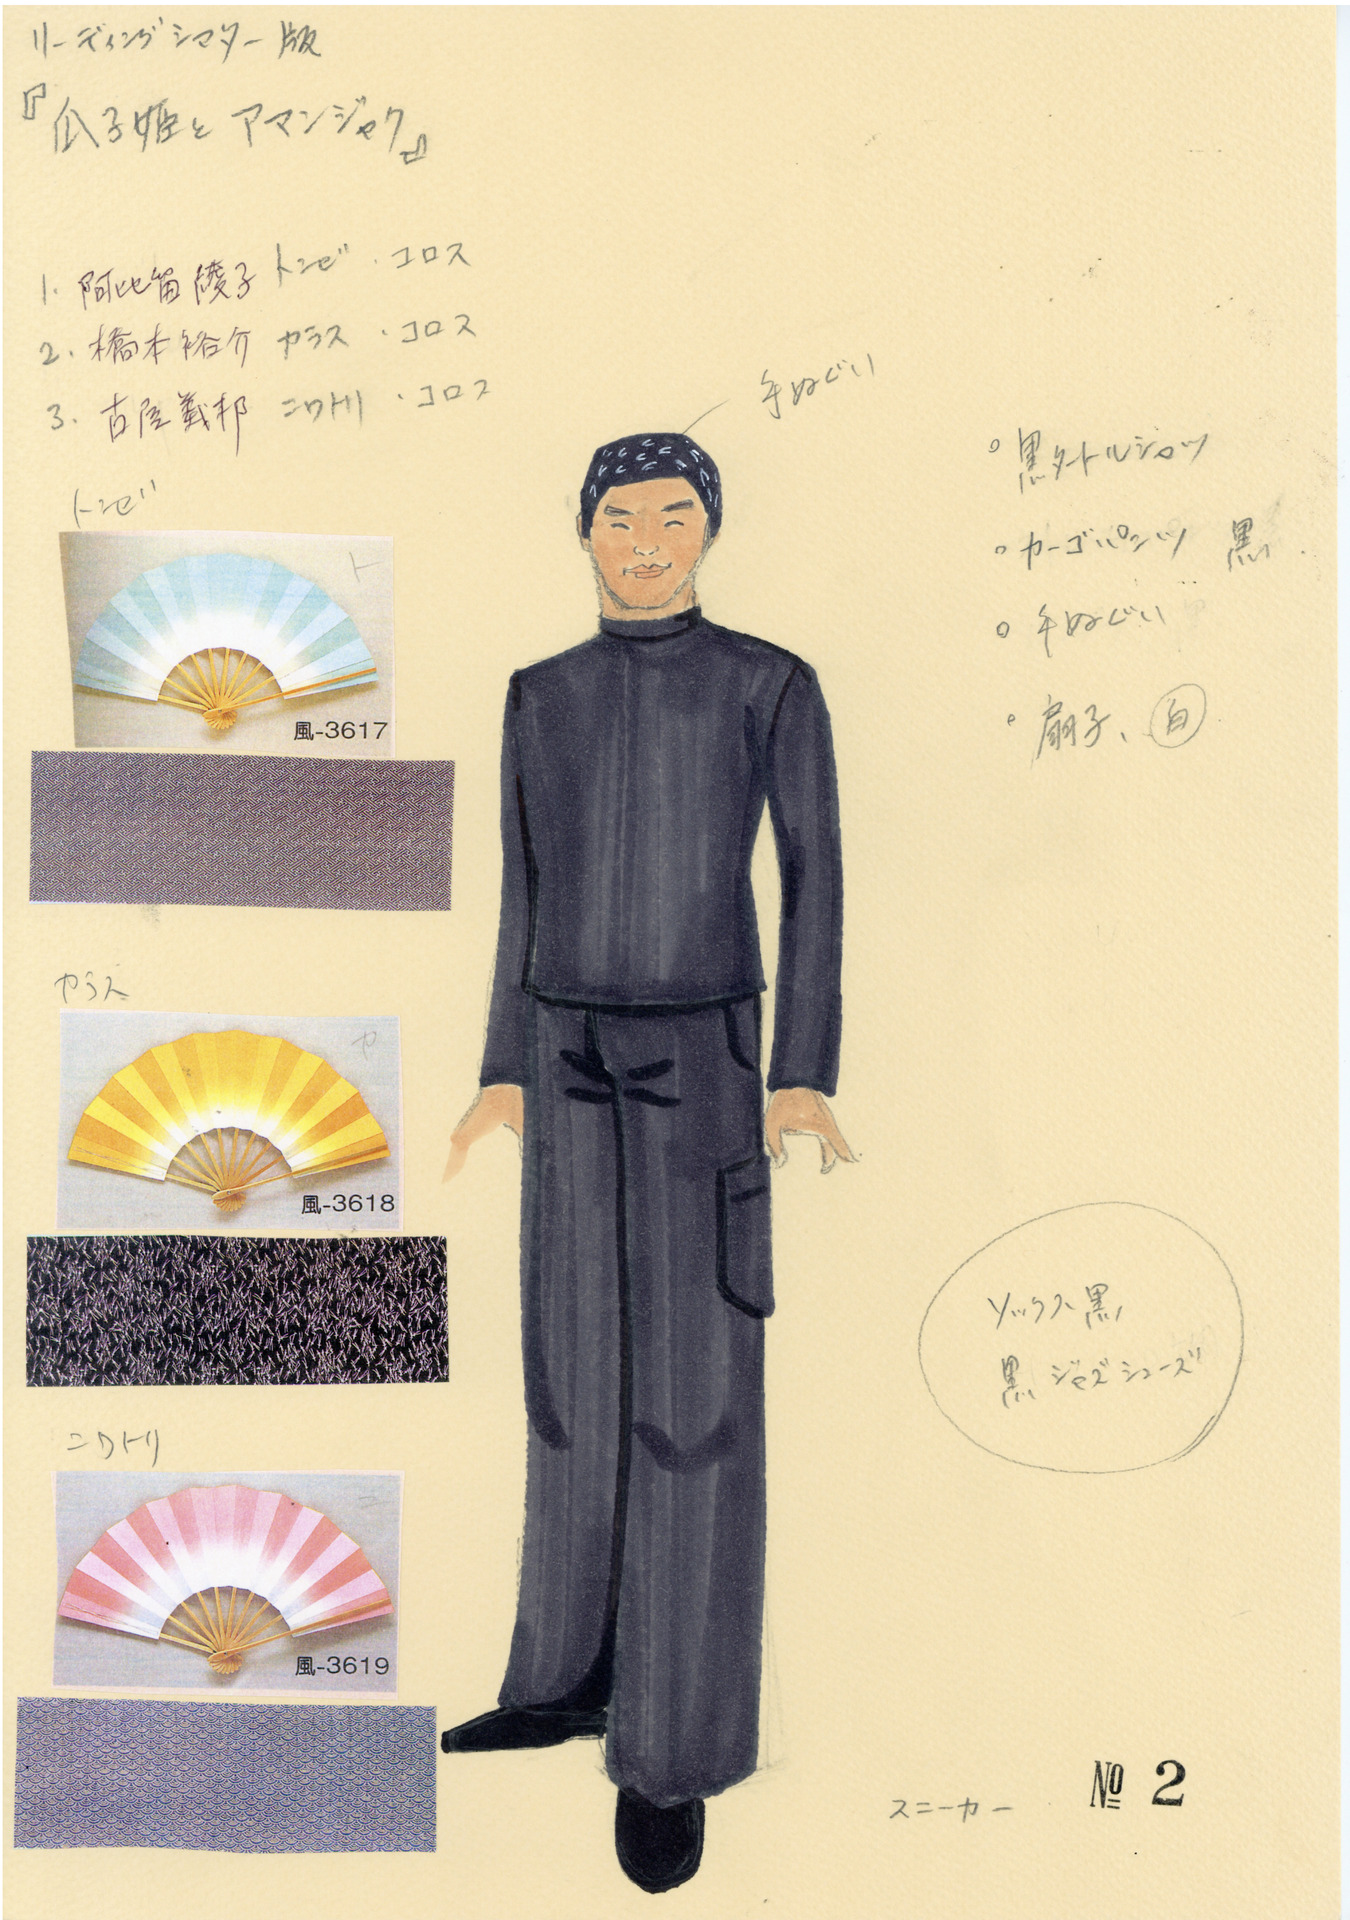 リーディングシアター版
『瓜子姫とアマンジャク』
1. 阿比留綾子 トンビ・コロス
2. 橋本裕介 カラス・コロス
3. 古屋義邦 ニワトリ・コロス
手ぬぐい
。黒タートルシャツ
。カーゴパンツ 黒
。手ぬぐい
。扇子、白
トンビ
ト
風-3617
カラス
カ
風-3618
ソックス黒
黒ジャズシューズ
ニワトリ
ニ
風-3619
スニーカー
№ 2